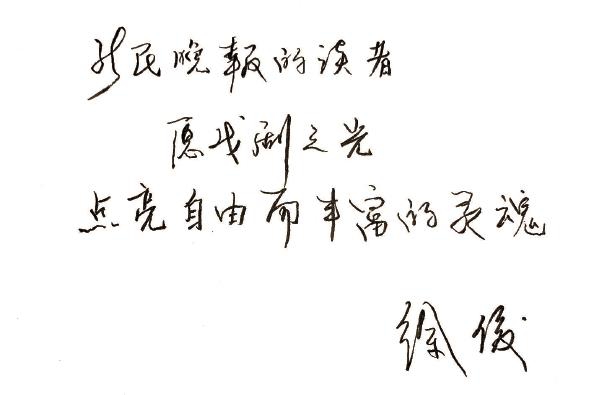 新民晚报的读者
愿戏剧之光
点亮自由而丰富的灵魂
徐俊